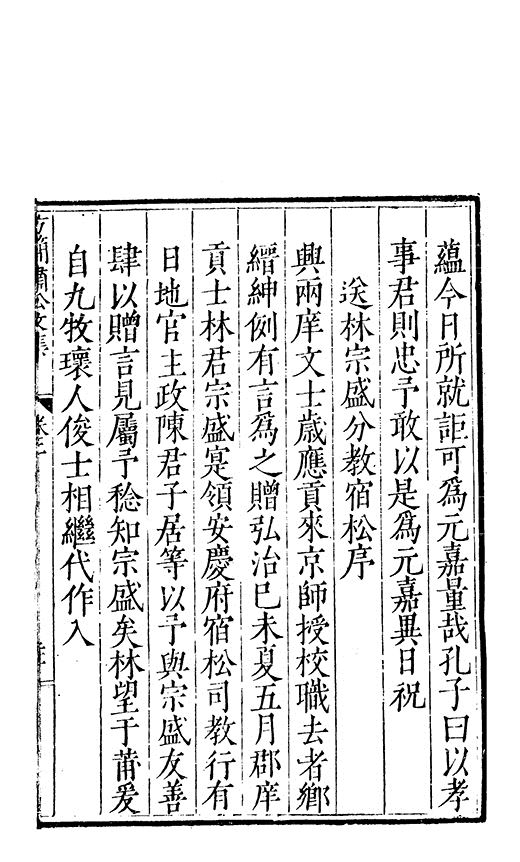 蘊今日所就詎可爲元嘉量哉孔子曰以孝
事君則忠予敢以是爲元嘉異日祝
送林宗盛分教宿松序
興兩庠文士歲應貢來京師授校職去者鄉
縉紳例有言爲之贈弘治己未夏五月郡庠
貢士林君宗盛寔領安慶府宿松司教行有
日地官主政陳君子居等以予與宗盛友善
肆以贈言見屬予稔知宗盛矣林望于莆爰
自九牧瓌人俊士相繼代作入
方簡肅公文集